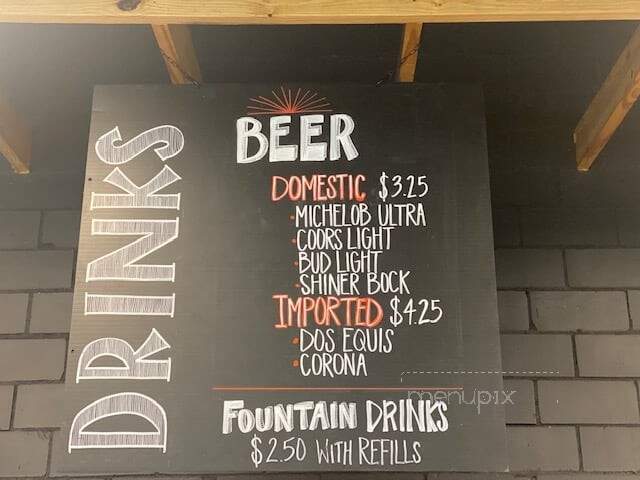 DRINKS
BEER
DOMESTIC $3.25
• MICHELOB ULTRA
• COORS LIGHT
• BUD LIGHT
• SHINER BOCK
IMPORTED $4.25
• DOS EQUIS
• CORONA
FOUNTAIN DRINKS
$2.50 WITH REFILLS
menupix